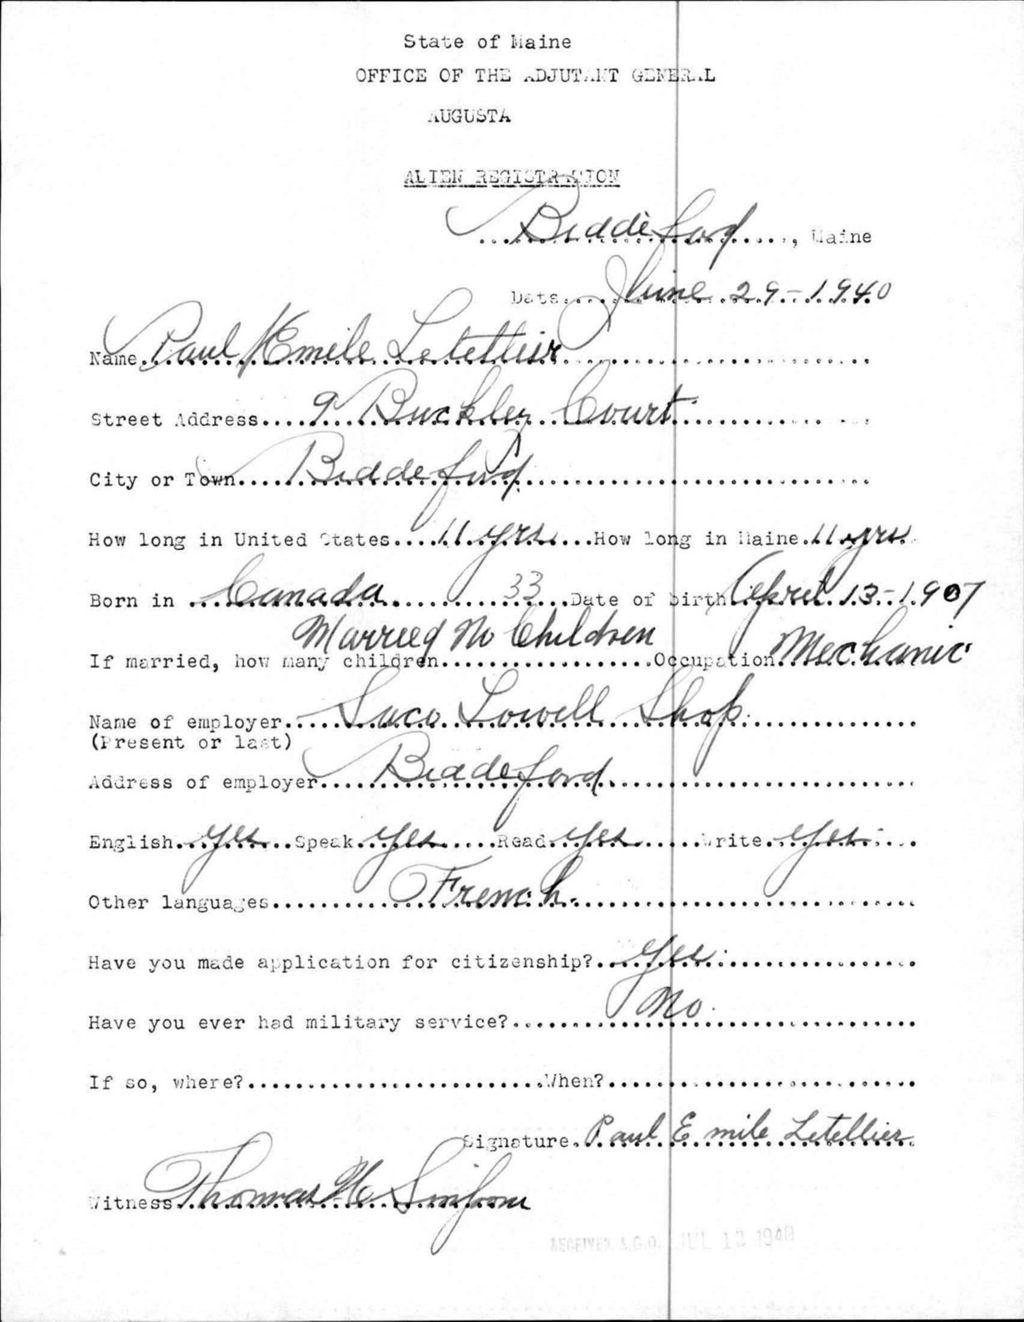 State of Maine
OFFICE OF THE ADJUTANT GENERAL
AUGUSTA
ALIEN REGISTRATION
Biddeford, Maine
Date June 29-1940
Name Paul Emile Letellier
Street Address 9 Buckley Court
City or Town Biddeford
How long in United States 11 yrs. How long in Maine 11 yrs.
Born in Canada 33 Date of birth April 13-1907
If married, how many children Married No Children Occupation Mechanic
Name of employer Saco Lowell Shop
(Present or last)
Address of employer Biddeford
English Yes Speak Yes Read Yes Write Yes
Other languages French
Have you made application for citizenship? Yes
Have you ever had military service? No
If so, where? When?
Signature Paul Emile Letellier
Witness Thomas
RECEIVED A.G.O. JUL 12 1940